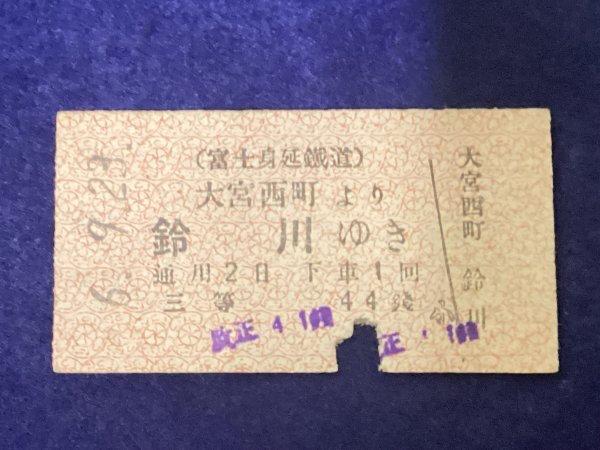 6. 9.23.
(富士身延鐵道)
大宮西町より
鈴川ゆき
通用2日 下車1回
三等 44錢
小
大宮西町 鈴川
改正 4
正